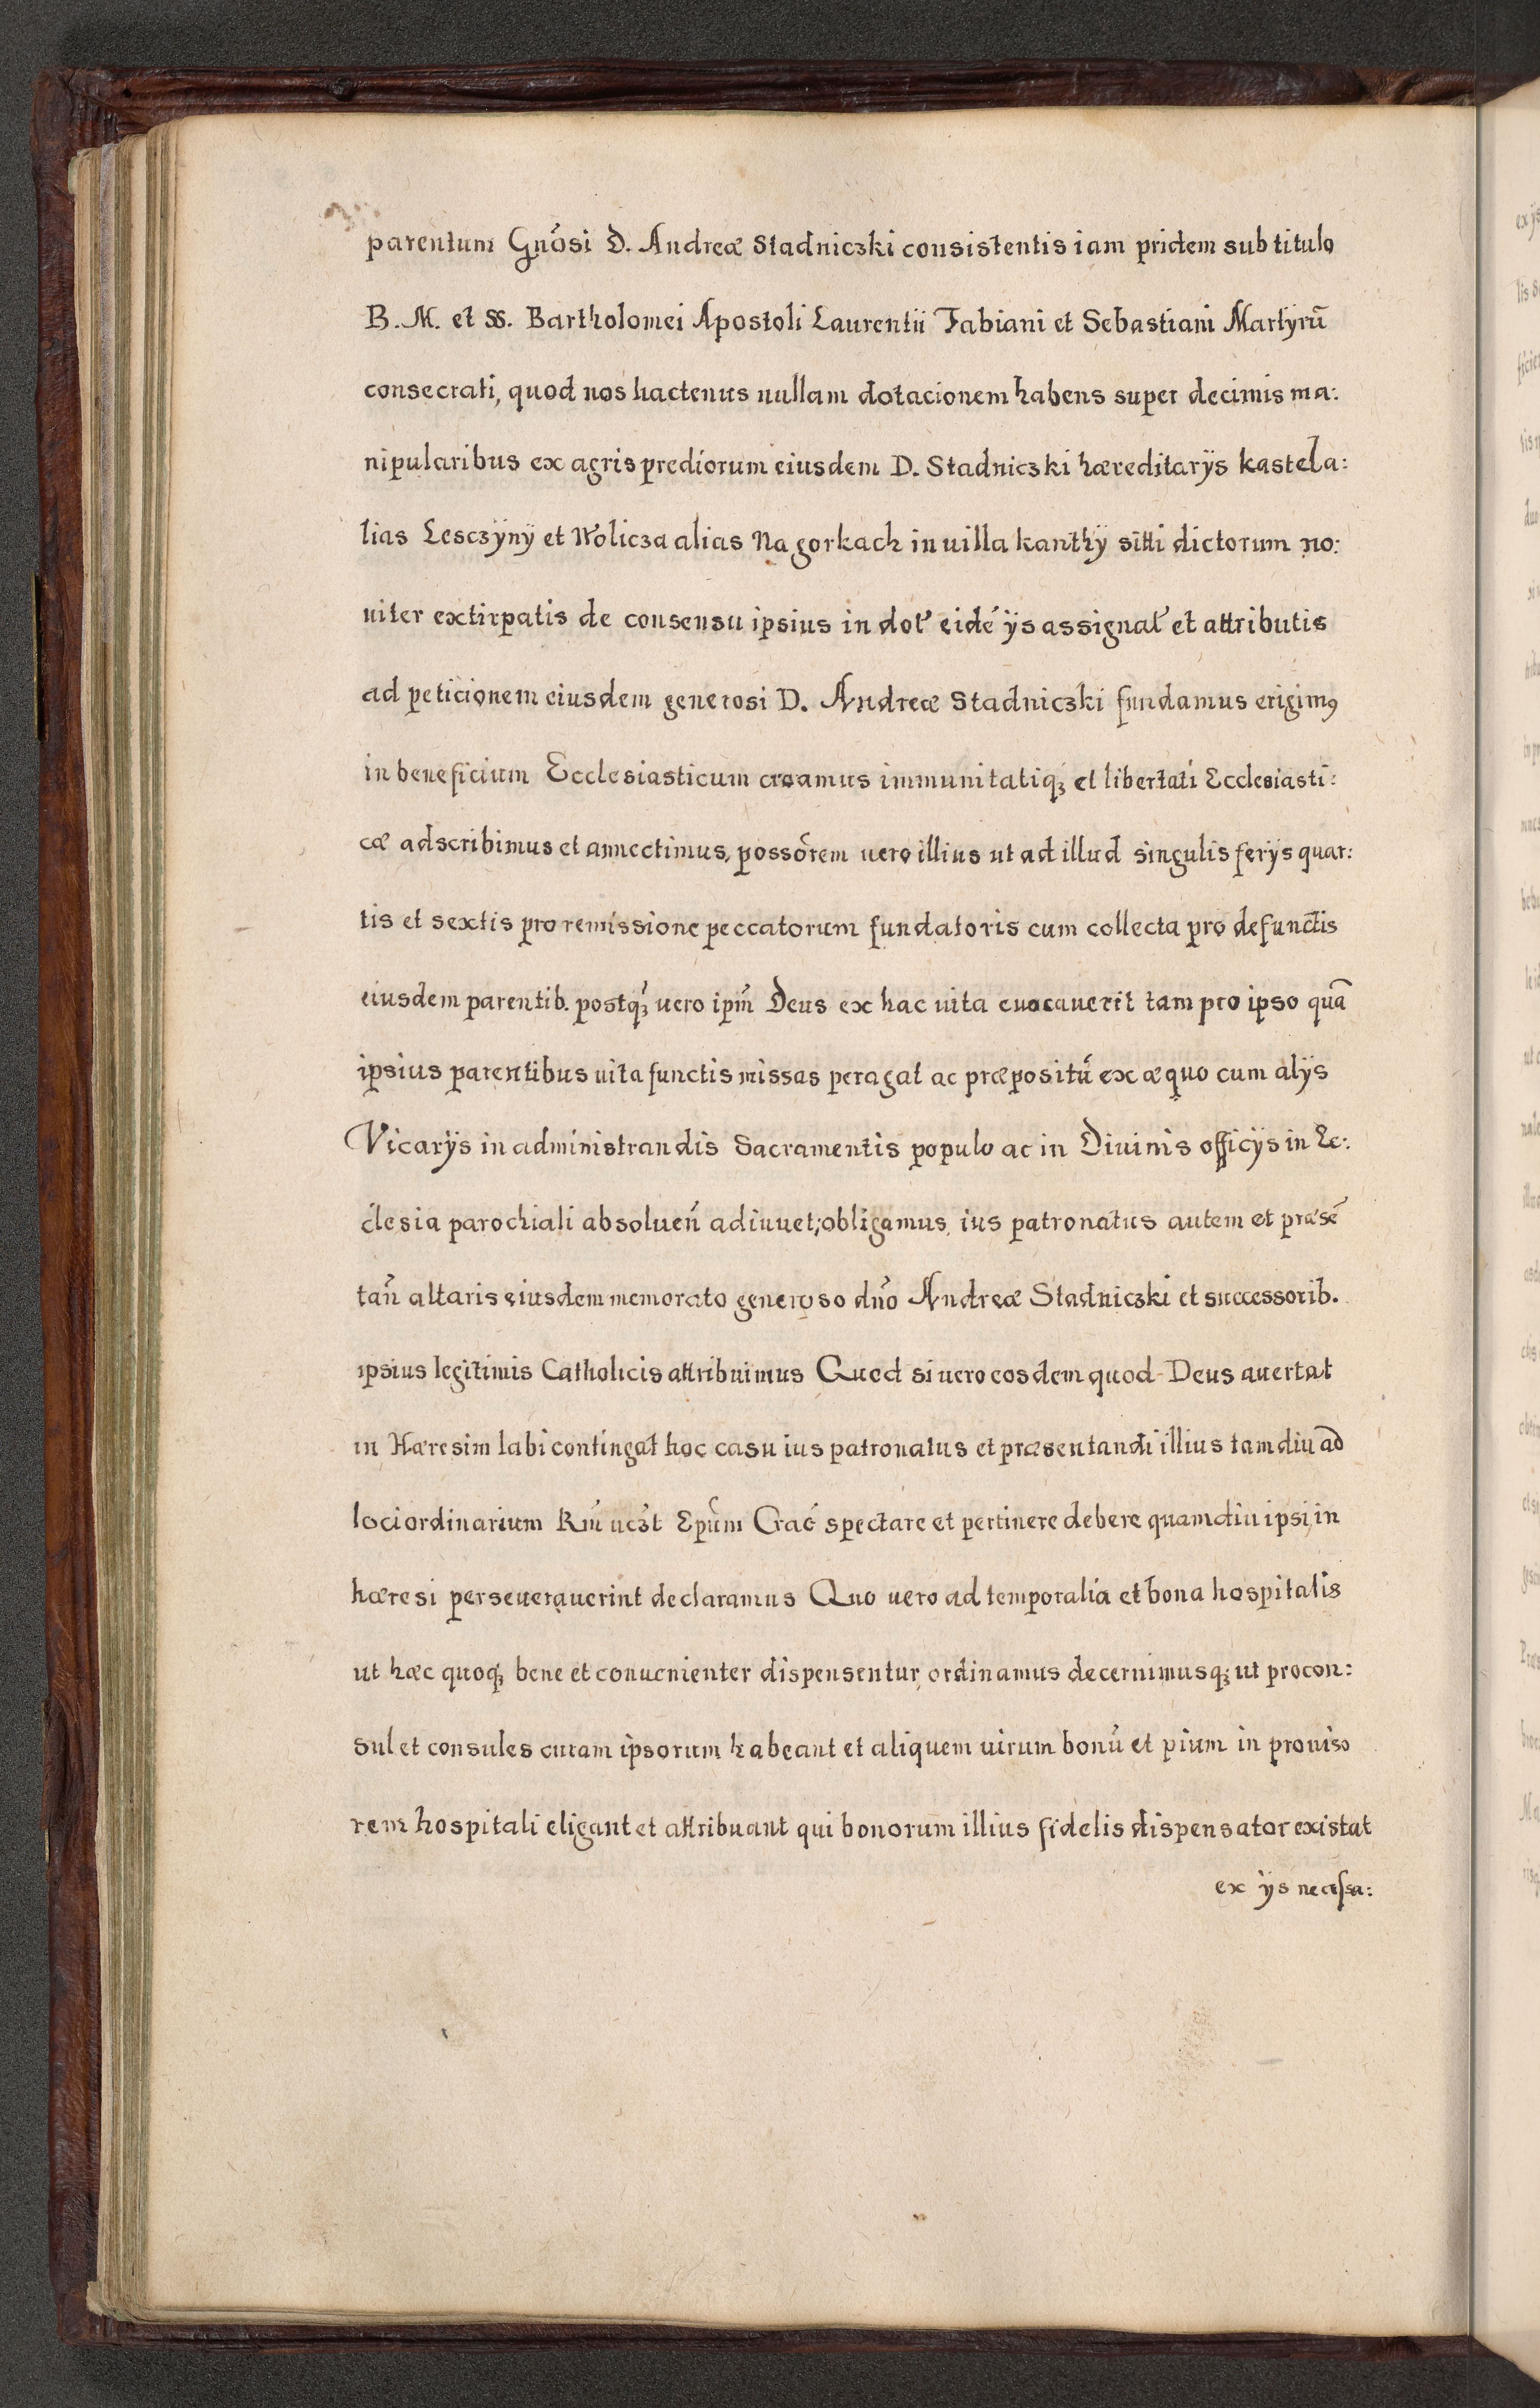 parentum Gnósi D. Andreæ Stadniczki consistentis iam pridem sub titulo
B. M. et SS. Bartholomei Apostoli Laurentii Fabiani et Sebastiani Martyrū
consecrati, quod nos hactenus nullam dotacionem habens super decimis ma:
nipularibus ex agris prediorum eiusdem D. Stadniczki hæreditarÿs kastela:
lias Lesczÿnÿ et Wolicza alias Na gorkach in uilla kanthÿ sitti dictorum no:
uiter extirpatis de consensu ipsius in dot' eidé ÿs assignat' et attributis
ad peticionem eiusdem generosi D. Andreæ Stadniczki fundamus erigimꝰ
in beneficium Ecclesiasticum creamus immunitatiqꝫ et libertati Ecclesiasti:
cæ adscribimus et annectimus, possōrem uero illius ut ad illud singulis ferÿs quar:
tis et sextis pro remissione peccatorum fundatoris cum collecta pro defunctis
eiusdem parentib. postqꝫ́ uero ipm̄ Deus ex hac uita euocauerit tam pro ipso quā
ipsius parentibus uita functis missas peragat ac præpositū́ ex æquo cum alÿs
Vicarÿs in administrandis Sacramentis populo ac in Diuinis officÿs in Ec:
clesia parochiali absoluen̄ adiuuet; obligamus, ius patronatus autem et præsē
tan̄ altaris eiusdem memorato generoso dn̄o Andreæ Stadniczki et successorib.
ipsius legitimis Catholicis attribuimus Quod si uero eosdem quod Deus auertat
in Hæresim labi contingat hoc casu ius patronatus et præsentandi illius tamdiu ad
loci ordinarium Rm̄ ueꝫt Epūm Crac̄ spectare et pertinere debere quamdiu ipsi in
hæresi perseuerauerint declaramus Quo uero ad temporalia et bona hospitalis
ut hæc quoqꝫ bene et conuenienter dispensentur, ordinamus decernimusqꝫ ut procon:
sul et consules curam ipsorum habeant et aliquem uirum bonū́ et pium in prouiso
rem hospitali eligant et attribuant qui bonorum illius fidelis dispensator existat
ex ÿs necessa: